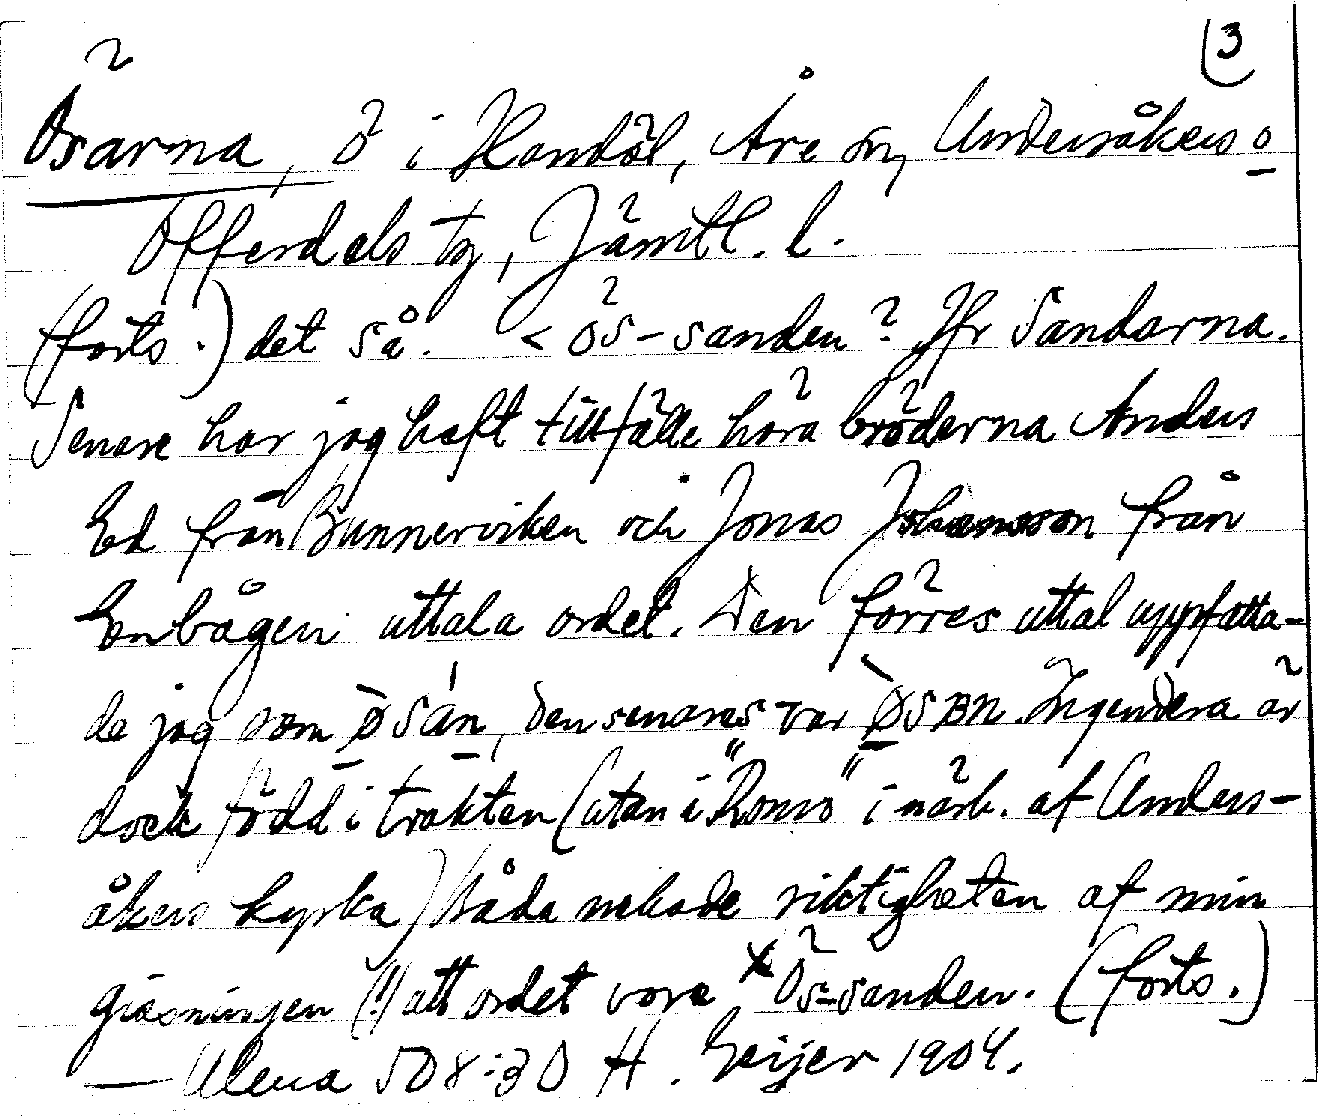 3
Ösarna, ö i Handöl, Åre sn, Undersåkers o
Offerdals tg, Jämtl. l.
(forts.) det så. < ös-sanden? Jfr Sandarna.
Senare har jag haft tillfälle höra bröderna Anders
Ed från Bunnerviken och Jonas Johansson från
Enbågen uttala ordet. Den förres uttal uppfatta-
de jag som , den senares var . Ingendera är
dock född i trakten (utan i "Romo" i närh. af Unders-
åkers kyrka) Båda nekade riktigheten af min
gissningen (!) att ordet vore ×Ös-sanden. (forts.)
— Ulma 508:30 H. Geijer 1904.